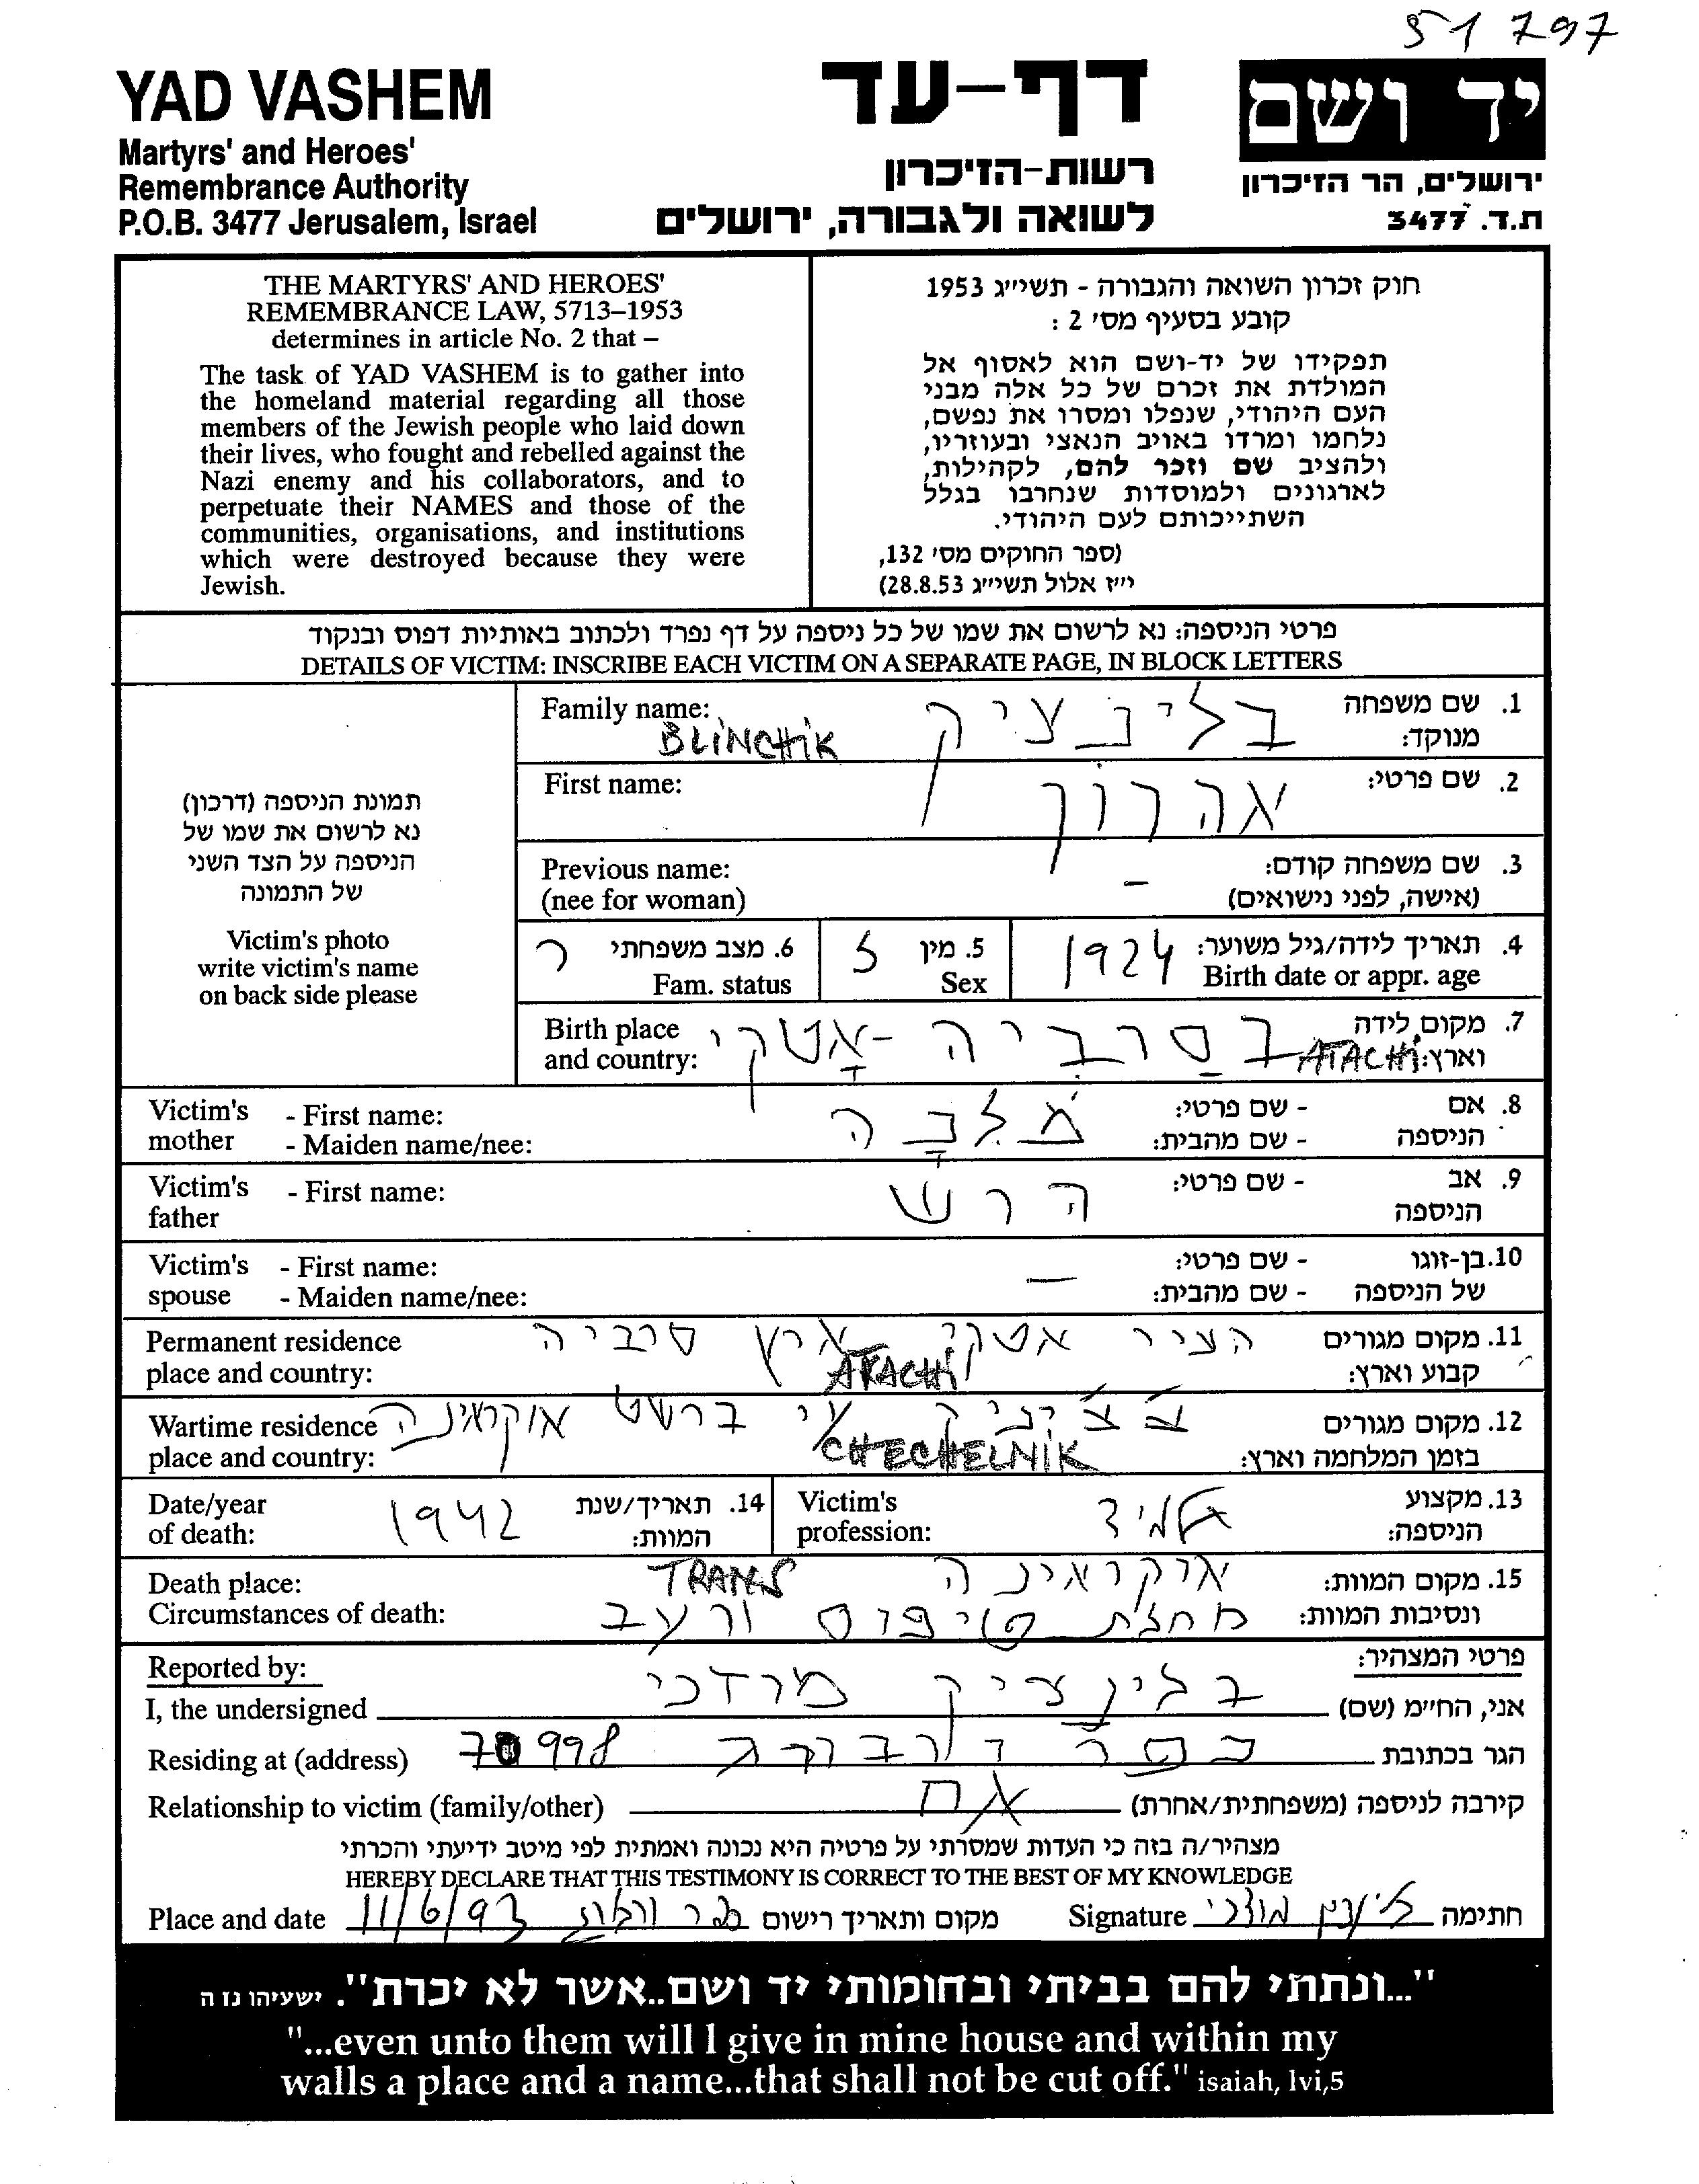 51797
YAD VASHEM
Martyrs' and Heroes'
Remembrance Authority
P.O.B. 3477 Jerusalem, Israel
דף-עד
רשות-הזיכרון
לשואה ולגבורה, ירושלים
יד ושם
ירושלים, הר הזיכרון
ת.ד. 3477
THE MARTYRS' AND HEROES'
REMEMBRANCE LAW, 5713–1953
determines in article No. 2 that –
The task of YAD VASHEM is to gather into
the homeland material regarding all those
members of the Jewish people who laid down
their lives, who fought and rebelled against the
Nazi enemy and his collaborators, and to
perpetuate their NAMES and those of the
communities, organisations, and institutions
which were destroyed because they were
Jewish.
חוק זכרון השואה והגבורה - תשי״ג 1953
קובע בסעיף מס׳ 2 :
תפקידו של יד-ושם הוא לאסוף אל
המולדת את זכרם של כל אלה מבני
העם היהודי, שנפלו ומסרו את נפשם,
נלחמו ומרדו באויב הנאצי ובעוזריו,
ולהציב שם וזכר להם, לקהילות,
לארגונים ולמוסדות שנחרבו בגלל
השתייכותם לעם היהודי.
(ספר החוקים מס׳ 132,
י״ז אלול תשי״ג 28.8.53)
פרטי הניספה: נא לרשום את שמו של כל ניספה על דף נפרד ולכתוב באותיות דפוס ובנקוד
DETAILS OF VICTIM: INSCRIBE EACH VICTIM ON A SEPARATE PAGE, IN BLOCK LETTERS
תמונת הניספה (דרכון)
נא לרשום את שמו של
הניספה על הצד השני
של התמונה
Victim's photo
write victim's name
on back side please
Family name: בלינציק 1. שם משפחה
BLINCHIK מנוקד:
First name: אהרון 2. שם פרטי:
Previous name: 3. שם משפחה קודם:
(nee for woman) – (אישה, לפני נישואים)
4. תאריך לידה/גיל משוער: 1924
Birth date or appr. age
5. מין ז
Sex
6. מצב משפחתי ר
Fam. status
Birth place בסרביה - אטקי 7. מקום לידה
and country: ATACHI וארץ:
Victim's - First name: מלכה - שם פרטי: 8. אם
mother - Maiden name/nee: - שם מהבית: הניספה
Victim's - First name: הרש - שם פרטי: 9. אב
father הניספה
Victim's - First name: – - שם פרטי: 10. בן-זוגו
spouse - Maiden name/nee: - שם מהבית: של הניספה
Permanent residence העיר אטקי ארץ סרביה 11. מקום מגורים
place and country: ATACHI קבוע וארץ:
Wartime residence ברשט אוקראינה 12. מקום מגורים
place and country: CHECHELNIK בזמן המלחמה וארץ:
13. מקצוע תלמיד Victim's
הניספה: profession:
14. תאריך/שנת 1942 Date/year
המוות: of death:
Death place: TRANS אוקראינה 15. מקום המוות:
Circumstances of death: מחלת טיפוס ורעב ונסיבות המוות:
Reported by: פרטי המצהיר:
I, the undersigned בלינציק מרדכי אני, החי״מ (שם)
Residing at (address) 70998 כפר ורבורג הגר בכתובת
Relationship to victim (family/other) אח קירבה לניספה (משפחתית/אחרת)
מצהיר/ה בזה כי העדות שמסרתי על פרטיה היא נכונה ואמתית לפי מיטב ידיעתי והכרתי
HEREBY DECLARE THAT THIS TESTIMONY IS CORRECT TO THE BEST OF MY KNOWLEDGE
Place and date 11/6/93 כפר ורבורג מקום ותאריך רישום Signature בלינציק מרדכי חתימה
"...ונתתי להם בביתי ובחומותי יד ושם..אשר לא יכרת". ישעיהו נו ה
"...even unto them will I give in mine house and within my
walls a place and a name...that shall not be cut off." isaiah, lvi,5